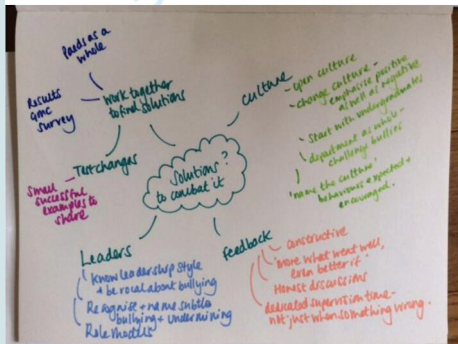 Paeds as a
whole
Results
GMC
survey
work together
to find solutions
Test changes
Small
successful
examples to
share
Solutions?
to combat it
Culture
- open culture
- change culture -
emphasise positive
as well as negative
Start with undergraduates
department as whole -
challenge bullying
'name the culture'
behaviours expected +
encouraged.
Leaders
Know leadership style
+ be vocal about bullying
Recognise + name subtle
bullying + undermining
Role models
feedback
constructive
'more what went well,
even better if'
Honest discussions
dedicated supervision time -
not just when something wrong.